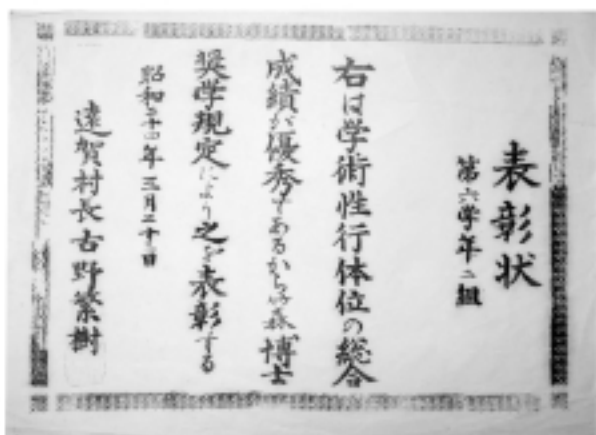 表彰状
第六学年二組
右は学術性行体位の総合
成績が優秀であるから故森博士
奨学規定により之を表彰する
昭和二十四年三月二十日
遠賀村長古野繁樹